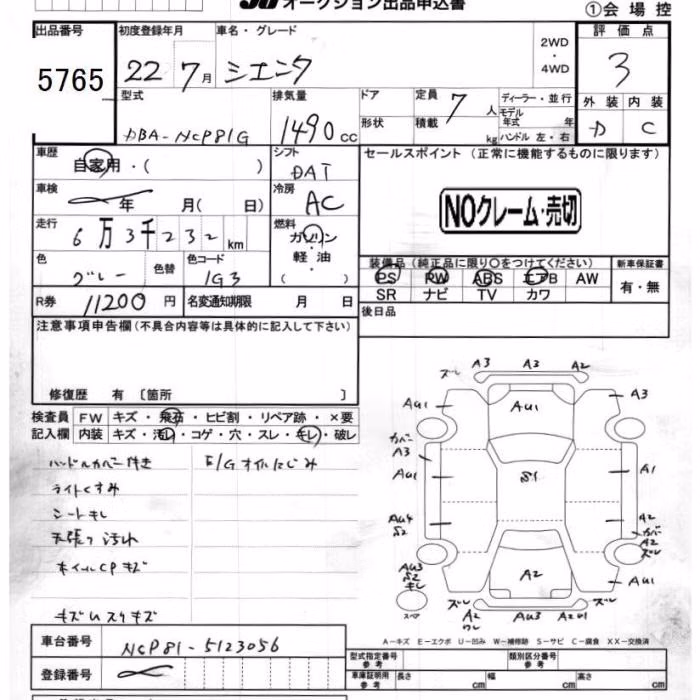 オークション出品申込書
①会場控
出品番号 初度登録年月 車名・グレード 2WD・4WD 評価点
5765 22 7月 シエンタ 3
型式 排気量 ドア 定員 7人 ディーラー・並行 外装 内装
DBA-NCP81G 1490cc 形状 積載 kg モデル年式 年 ハンドル 左・右 D C
車歴 自家用・( ) シフト DAT セールスポイント (正常に機能するものに限ります)
車検 年 月( 日) 冷房 AC
NOクレーム・売切
走行 6万3千232km 燃料 ガソリン・軽油・( )
色 グレー 色替 色コード 1G3
装備品 (純正品に限り○をつけてください) 新車保証書
PS PW ABS エアB AW 有・無
SR ナビ TV カワ
R券 11200円 名変通知期限 月 日
後日品
注意事項申告欄 (不具合内容等は具体的に記入して下さい)
修復歴 有 〔箇所 〕
検査員 FW キズ・飛石・ヒビ割・リペア跡・×要
記入欄 内装 キズ・汚れ・コゲ・穴・スレ・キレ・破レ
ハンドルカバー付き E/Gオイルにじみ
ライトくすみ
シートキレ
天張り汚れ
ホイルCPキズ
キズUスリキズ
ズレ A3 A3 A2
AU1 AU1 A3
カバー A3
AU1 S1 A1
AU4 S2 A2
カバー A2 ズレ
AU3 S2 キレ A2 AU1
スペア
ズレ A2 ワレ AU3 A2U1 ズレ
A-キズ E-エクボ U-凹み W-補修跡 S-サビ C-腐食 XX-交換済
車台番号 NCP81-5123056
登録番号
型式指定番号 参考 類別区分番号 参考
車庫証明用 参考 長さ cm 幅 cm 高さ cm